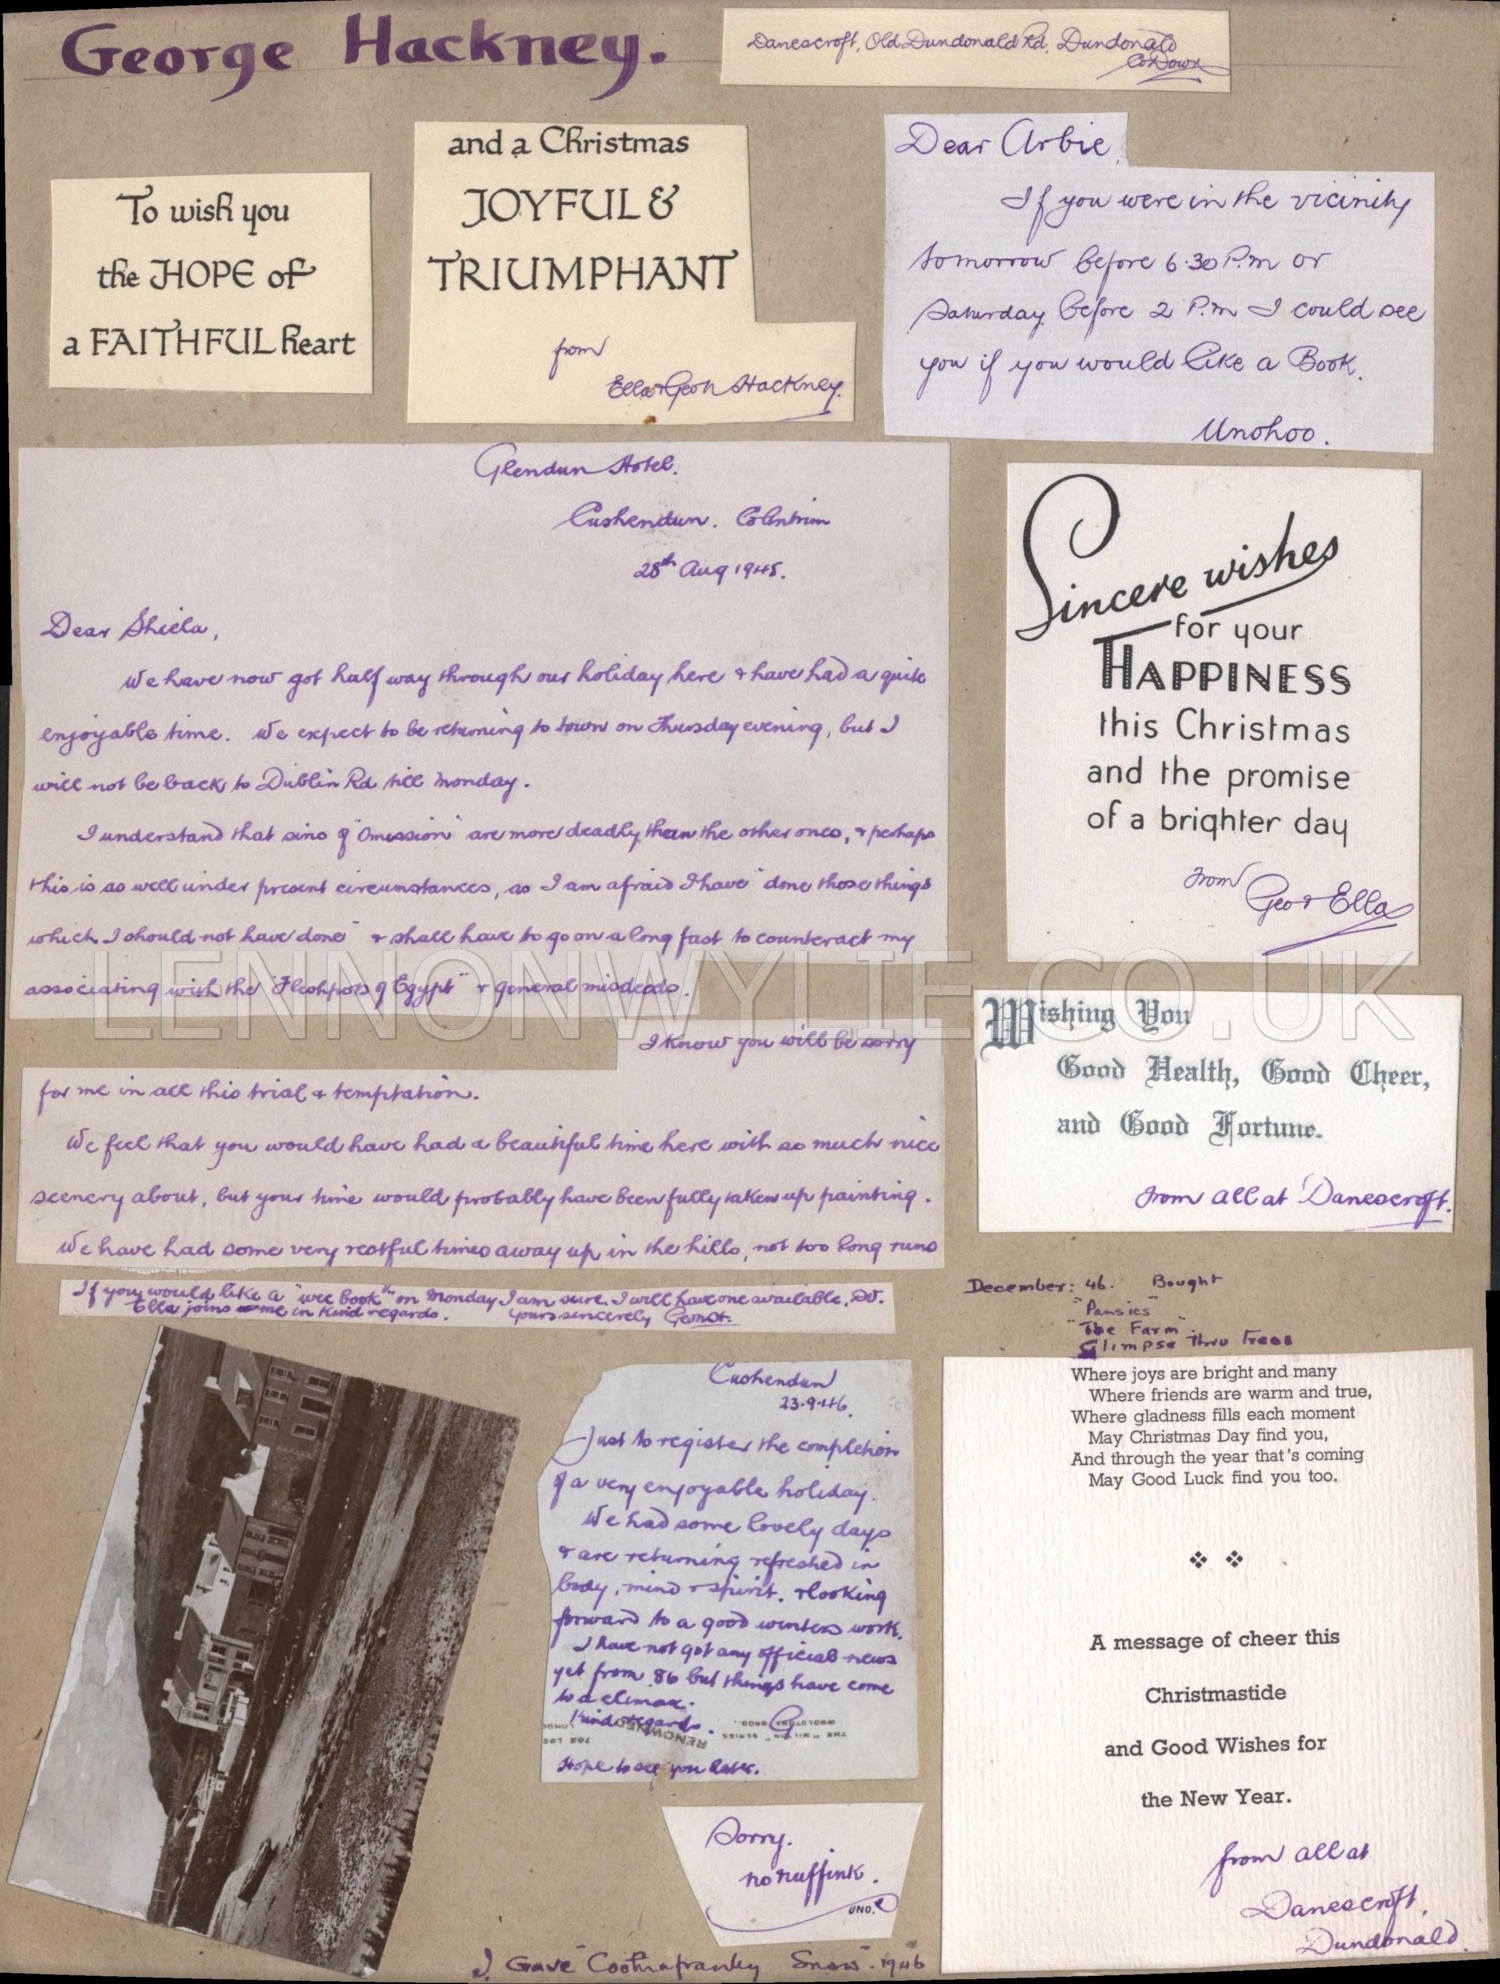 George Hackney.
Danescroft, Old Dundonald Rd, Dundonald
Co Down
To wish you
the HOPE of
a FAITHFUL heart
and a Christmas
JOYFUL &
TRIUMPHANT
from
Ella & Geo H Hackney.
Dear Arbie,
If you were in the vicinity
tomorrow before 6.30 P.m or
Saturday before 2 P.m I could see
you if you would like a Book.
Unohoo.
Glendun Hotel.
Cushendun. Co Antrim
28th Aug 1945.
Dear Shiela,
We have now got half way through our holiday here & have had a quite
enjoyable time. We expect to be returning to town on Thursday evening, but I
will not be back to Dublin Rd till Monday.
I understand that sins of "Omission" are more deadly than the other ones, & perhaps
this is as well under present circumstances, as I am afraid I have "done those things
which I should not have done" & shall have to go on a long fast to counteract my
associating with the "Fleshpots of Egypt" & general misdeeds.
I know you will be sorry
for me in all this trial & temptation.
We feel that you would have had a beautiful time here with so much nice
scenery about, but your time would probably have been fully taken up painting.
We have had some very restful times away up in the hills, not too long runs
If you would like a "wee book" on Monday I am sure I will have one available. DV.
Ella joins me in kind regards. Yours sincerely Geo H.
Sincere wishes
for your
HAPPINESS
this Christmas
and the promise
of a brighter day
from
Geo & Ella
Wishing You
Good Health, Good Cheer,
and Good Fortune.
from all at Danescroft.
LENNONWYLIE.CO.UK
December: 46. Bought
"Pansies"
"The Farm"
Glimpse thro Trees
Where joys are bright and many
Where friends are warm and true,
Where gladness fills each moment
May Christmas Day find you,
And through the year that's coming
May Good Luck find you too.
A message of cheer this
Christmastide
and Good Wishes for
the New Year.
from all at
Danescroft,
Dundonald.
Cushendun
23.9.46.
Just to register the completion
of a very enjoyable holiday.
We had some lovely days
& are returning refreshed in
body, mind & spirit. & looking
forward to a good winters work.
I have not got any official news
yet from 86 but things have come
to a climax.
Kind regards. G
THE "MILTON" SERIES
WOOLSTONE BROS.
RENOWNED
Hope to see you later.
Sorry.
no nuffink.
UNO.
I Gave "Snow". 1946